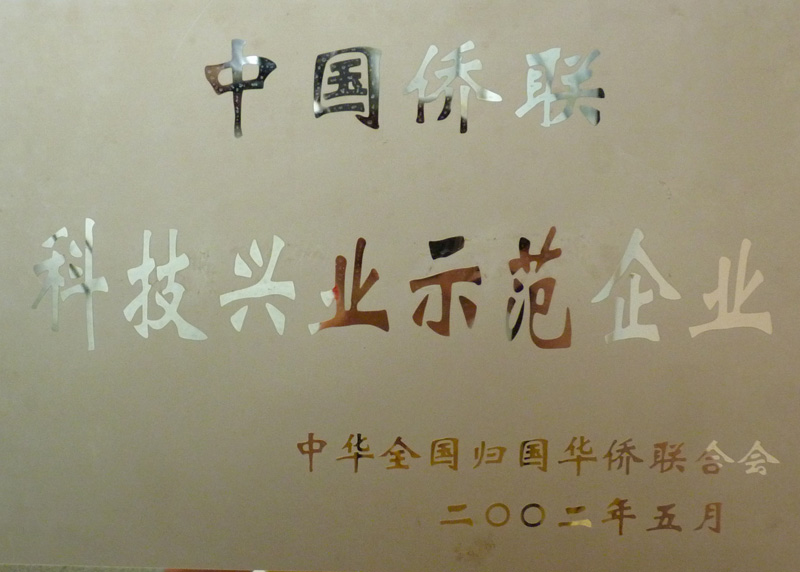 中国侨联
科技兴业示范企业
中华全国归国华侨联合会
二〇〇二年五月